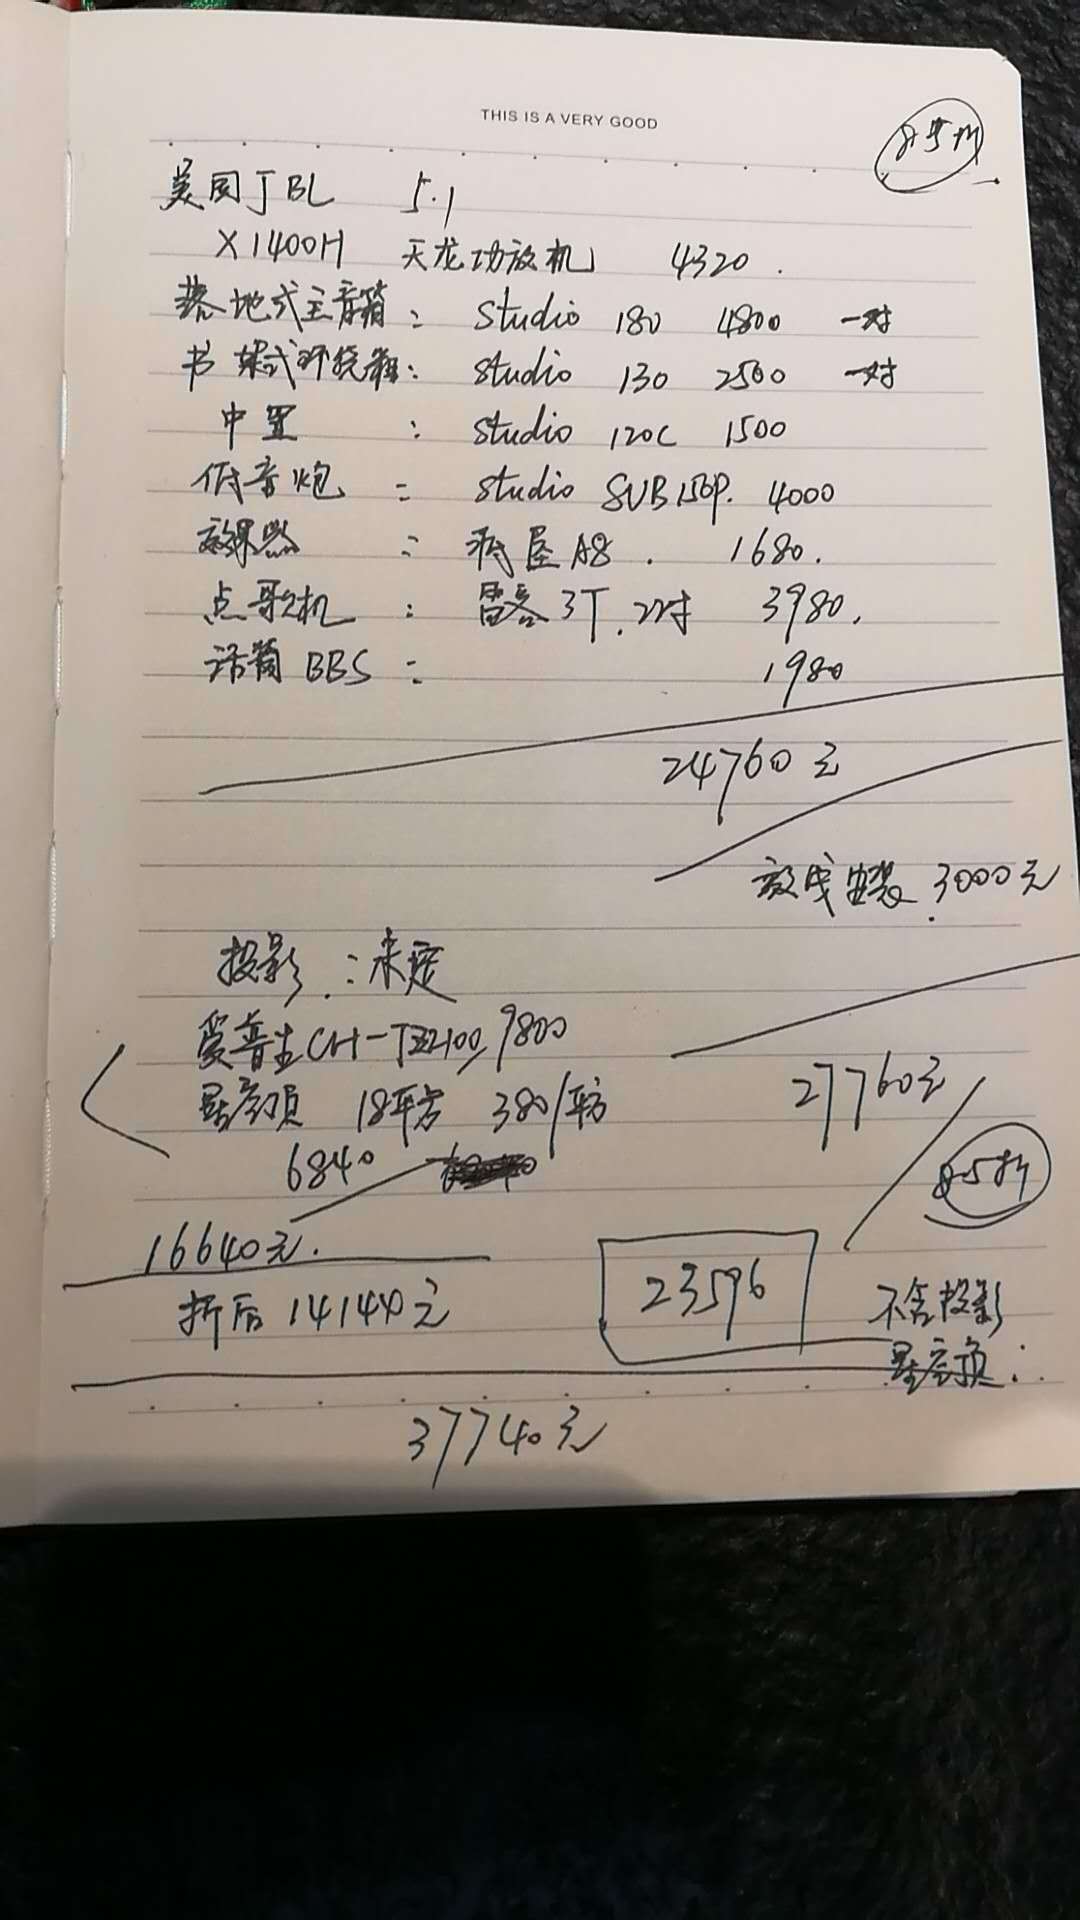 THIS IS A VERY GOOD
8.5折
美国JBL 5.1
X1400H 天龙功放机 4320.
落地式主音箱: Studio 180 4800 一对
书架式环绕箱: Studio 130 2500 一对
中置: Studio 120C 1500
低音炮: Studio SUB 150P. 4000
效果器: A8. 1680.
点歌机: 雷客3T. 22寸 3980.
话筒BBS: 1980
24760元
放线安装 3000元
投影: 未定
爱普生CH-TZ2100, 9800
27760元
星空顶 18平方 380/平方
6840
8.5折
16640元.
折后14144元
23596
不含投影
星空顶:
37740元